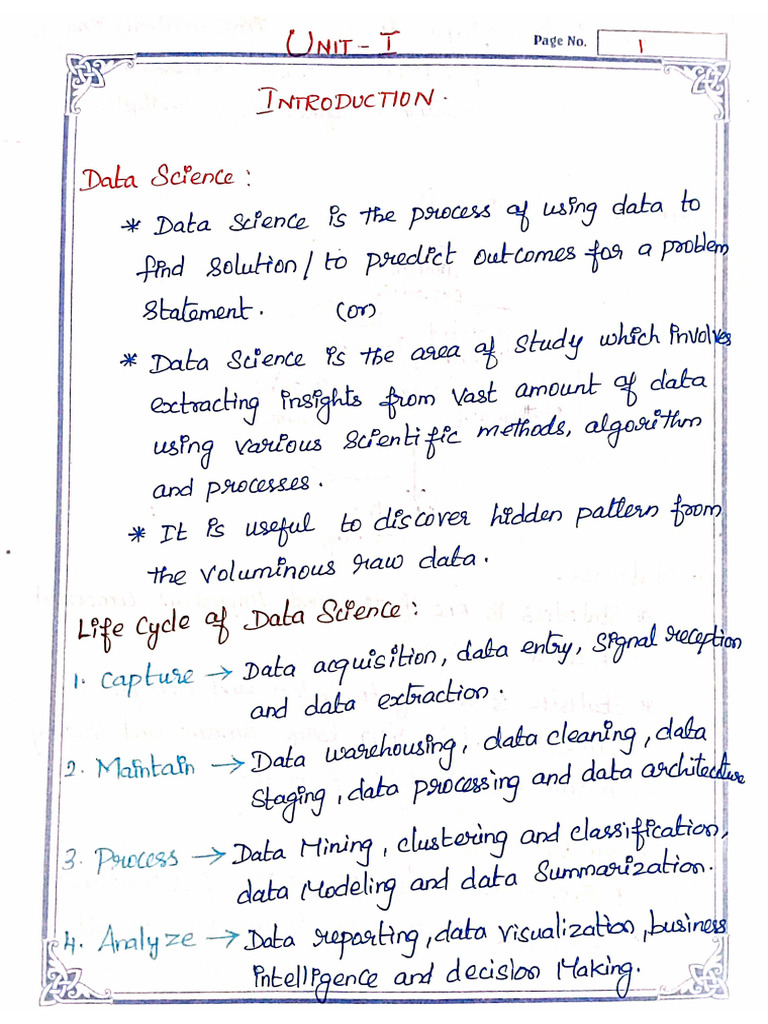 UNIT - I
Page No. 1
INTRODUCTION.
Data Science:
* Data Science is the process of using data to
find solution / to predict outcomes for a problem
statement. (or)
* Data Science is the area of study which involves
extracting insights from vast amount of data
using various scientific methods, algorithm
and processes.
* It is useful to discover hidden pattern from
the voluminous raw data.
Life Cycle of Data Science:
1. Capture → Data acquisition, data entry, signal reception
and data extraction.
2. Maintain → Data warehousing, data cleaning, data
staging, data processing and data architecture
3. Process → Data Mining, clustering and classification,
data Modeling and data Summarization.
4. Analyze → Data reporting, data visualization, business
intelligence and decision Making.